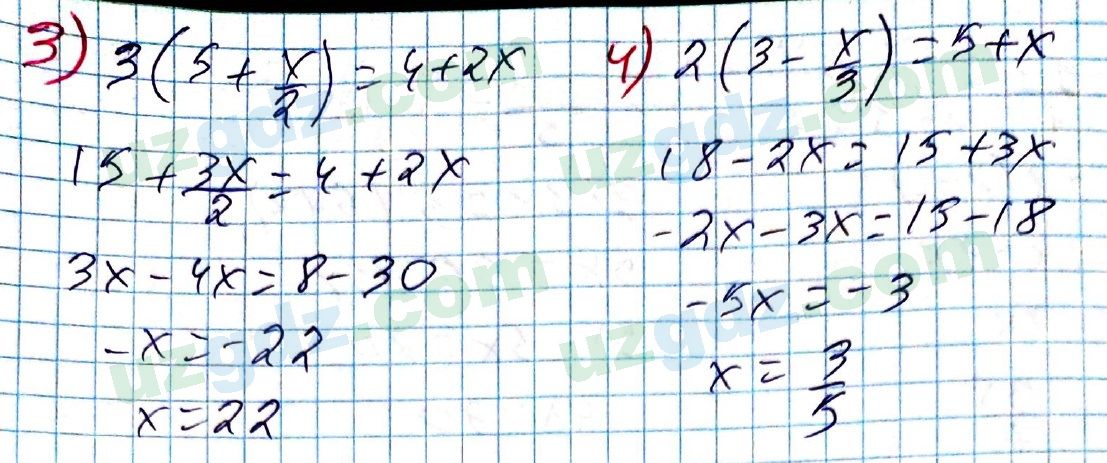 3) 3(5 + x/2) = 4 + 2x
15 + 3x/2 = 4 + 2x
3x - 4x = 8 - 30
-x = -22
x = 22
4) 2(3 - x/3) = 5 + x
18 - 2x = 15 + 3x
-2x - 3x = 15 - 18
-5x = -3
x = 3/5
uzgdz.com
uzgdz.com
uzgdz.com
uzgdz.com